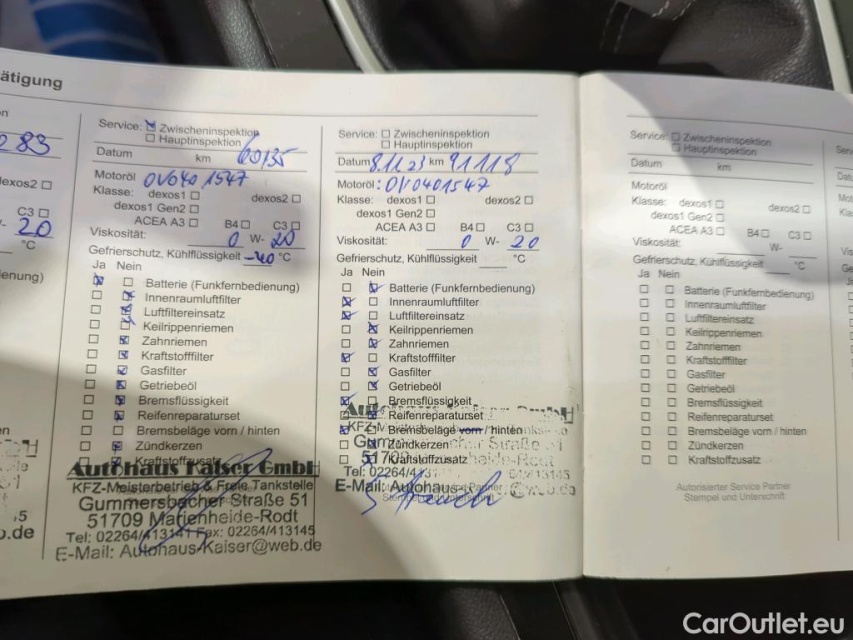 ätigung
283
dexos2 ☐
C3 ☐
W- 20
°C
Service: ☒ Zwischeninspektion
☐ Hauptinspektion
Datum km 60135
Motoröl OV0401547
Klasse: dexos1 ☐ dexos2 ☐
dexos1 Gen2 ☐
ACEA A3 ☐ B4 ☐ C3 ☐
Viskosität: 0 W- 20
Gefrierschutz, Kühlflüssigkeit -40 °C
Ja Nein
Batterie (Funkfernbedienung)
Innenraumluftfilter
Luftfiltereinsatz
Keilrippenriemen
Zahnriemen
Kraftstofffilter
Gasfilter
Getriebeöl
Bremsflüssigkeit
Reifenreparaturset
Bremsbeläge vorn / hinten
Zündkerzen
Kraftstoffzusatz
Autohaus Kaiser GmbH
KFZ-Meisterbetrieb & Freie Tankstelle
Gummersbacher Straße 51
51709 Marienheide-Rodt
Tel: 02264/413141 Fax: 02264/413145
E-Mail: Autohaus-Kaiser@web.de
Service: ☐ Zwischeninspektion
☐ Hauptinspektion
Datum 8.11.23 km 91118
Motoröl: OV0401547
Klasse: dexos1 ☐ dexos2 ☐
dexos1 Gen2 ☐
ACEA A3 ☐ B4 ☐ C3 ☐
Viskosität: 0 W- 20
Gefrierschutz, Kühlflüssigkeit °C
Ja Nein
Batterie (Funkfernbedienung)
Innenraumluftfilter
Luftfiltereinsatz
Keilrippenriemen
Zahnriemen
Kraftstofffilter
Gasfilter
Getriebeöl
Bremsflüssigkeit
Reifenreparaturset
Bremsbeläge vorn / hinten
Zündkerzen
Kraftstoffzusatz
51709
Tel: 02264/413
E-Mail: Autohaus
Service: ☐ Zwischeninspektion
☐ Hauptinspektion
Datum km
Motoröl
Klasse: dexos1 ☐ dexos2 ☐
dexos1 Gen2 ☐
ACEA A3 ☐ B4 ☐ C3 ☐
Viskosität: W-
Gefrierschutz, Kühlflüssigkeit °C
Ja Nein
Batterie (Funkfernbedienung)
Innenraumluftfilter
Luftfiltereinsatz
Keilrippenriemen
Zahnriemen
Kraftstofffilter
Gasfilter
Getriebeöl
Bremsflüssigkeit
Reifenreparaturset
Bremsbeläge vorn / hinten
Zündkerzen
Kraftstoffzusatz
Autorisierter Service Partner
Stempel und Unterschrift
CarOutlet.eu